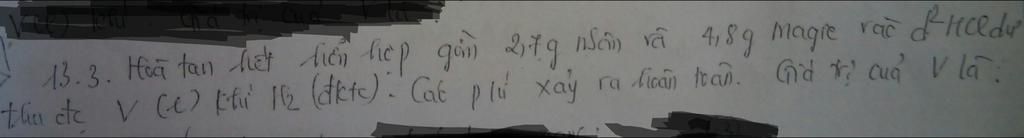 13.3. Hoà tan hết hỗn hợp gồm 2,7g nhôm và 4,8g magie vào d² HCl dư
thu đc V (l) khí H₂ (đktc). Các pứ xảy ra hoàn toàn. Giá trị của V là: